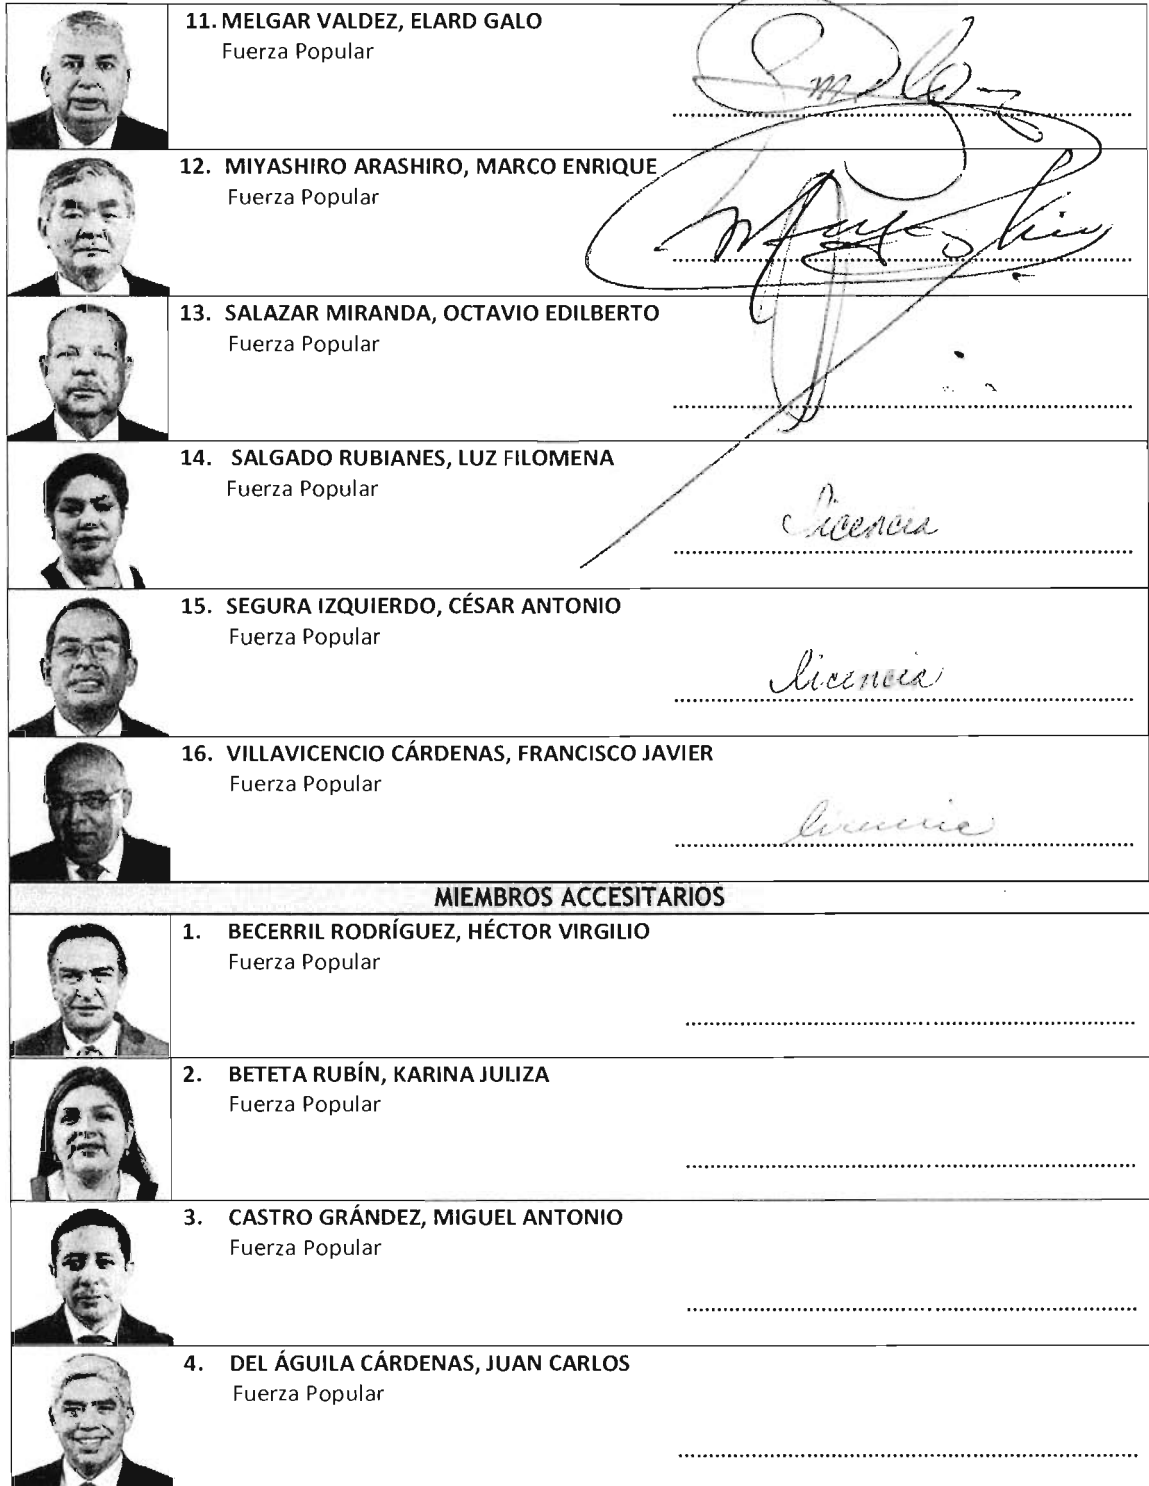 11. MELGAR VALDEZ, ELARD GALO
Fuerza Popular
12. MIYASHIRO ARASHIRO, MARCO ENRIQUE
Fuerza Popular
13. SALAZAR MIRANDA, OCTAVIO EDILBERTO
Fuerza Popular
14. SALGADO RUBIANES, LUZ FILOMENA
Fuerza Popular
licencia
15. SEGURA IZQUIERDO, CÉSAR ANTONIO
Fuerza Popular
licencia
16. VILLAVICENCIO CÁRDENAS, FRANCISCO JAVIER
Fuerza Popular
licencia
MIEMBROS ACCESITARIOS
1. BECERRIL RODRÍGUEZ, HÉCTOR VIRGILIO
Fuerza Popular
2. BETETA RUBÍN, KARINA JULIZA
Fuerza Popular
3. CASTRO GRÁNDEZ, MIGUEL ANTONIO
Fuerza Popular
4. DEL ÁGUILA CÁRDENAS, JUAN CARLOS
Fuerza Popular